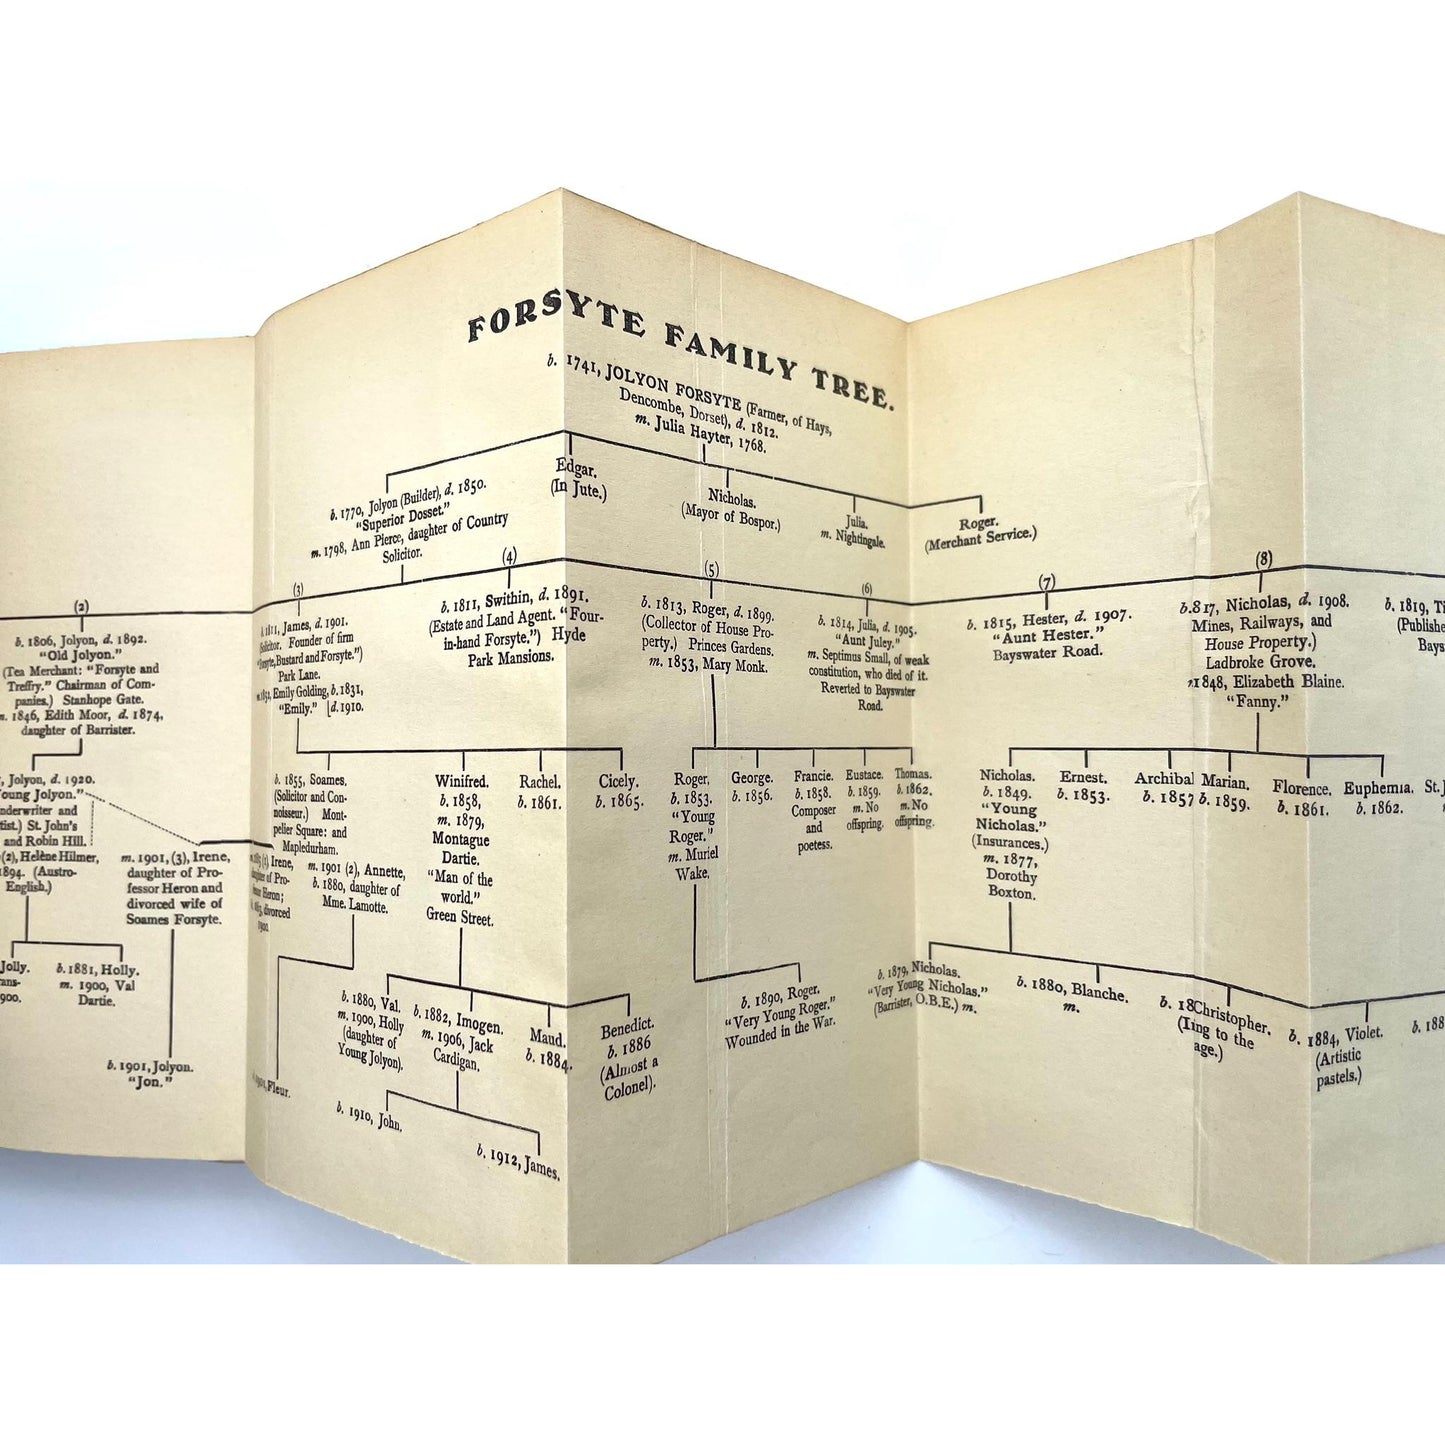 FORSYTE FAMILY TREE.
b. 1741, JOLYON FORSYTE (Farmer, of Hays,
Dencombe, Dorset), d. 1812.
m. Julia Hayter, 1768.
b. 1770, Jolyon (Builder), d. 1850.
"Superior Dosset."
m. 1798, Ann Pierce, daughter of Country
Solicitor.
Edgar.
(In Jute.)
Nicholas.
(Mayor of Bospor.)
Julia.
m. Nightingale.
Roger.
(Merchant Service.)
(2)
b. 1806, Jolyon, d. 1892.
"Old Jolyon."
(Tea Merchant: "Forsyte and
Treffry." Chairman of Com-
panies.) Stanhope Gate.
m. 1846, Edith Moor, d. 1874,
daughter of Barrister.
(3)
b. 1811, James, d. 1901.
Solicitor. Founder of firm
"Forsyte, Bustard and Forsyte.")
Park Lane.
Emily Golding, b. 1831,
"Emily." [d. 1910.
(4)
b. 1811, Swithin, d. 1891.
(Estate and Land Agent. "Four-
in-hand Forsyte.") Hyde
Park Mansions.
(5)
b. 1813, Roger, d. 1899.
(Collector of House Pro-
perty.) Princes Gardens.
m. 1853, Mary Monk.
(6)
b. 1814, Julia, d. 1905.
"Aunt Juley."
m. Septimus Small, of weak
constitution, who died of it.
Reverted to Bayswater
Road.
(7)
b. 1815, Hester, d. 1907.
"Aunt Hester."
Bayswater Road.
(8)
b.817, Nicholas, d. 1908.
Mines, Railways, and
House Property.)
Ladbroke Grove.
1848, Elizabeth Blaine.
"Fanny."
b. 1819, Ti
(Publishe
Bays
, Jolyon, d. 1920.
oung Jolyon."
nderwriter and
tist.) St. John's
and Robin Hill.
(2), Helène Hilmer,
894. (Austro-
English.)
m. 1901, (3), Irene,
daughter of Pro-
fessor Heron and
divorced wife of
Soames Forsyte.
b. 1855, Soames.
(Solicitor and Con-
noisseur.) Mont-
pelier Square: and
Mapledurham.
(1) Irene,
daughter of Pro-
fessor Heron;
divorced
1900.
m. 1901 (2), Annette,
b. 1880, daughter of
Mme. Lamotte.
Winifred.
b. 1858,
m. 1879,
Montague
Dartie.
"Man of the
world."
Green Street.
Rachel.
b. 1861.
Cicely.
b. 1865.
Roger.
b. 1853.
"Young
Roger."
m. Muriel
Wake.
George.
b. 1856.
Francie.
b. 1858.
Composer
and
poetess.
Eustace.
b. 1859.
m. No
offspring.
Thomas.
b. 1862.
m. No
offspring.
Nicholas.
b. 1849.
"Young
Nicholas."
(Insurances.)
m. 1877,
Dorothy
Boxton.
Ernest.
b. 1853.
Archibal
b. 1857
Marian.
b. 1859.
Florence.
b. 1861.
Euphemia.
b. 1862.
St. J
Jolly.
rans-
900.
b. 1881, Holly.
m. 1900, Val
Dartie.
b. 1901, Jolyon.
"Jon."
Fleur.
b. 1880, Val.
m. 1900, Holly
(daughter of
Young Jolyon).
b. 1882, Imogen.
m. 1906, Jack
Cardigan.
Maud.
b. 1884.
Benedict.
b. 1886
(Almost a
Colonel).
b. 1910, John.
b. 1912, James.
b. 1890, Roger.
"Very Young Roger."
Wounded in the War.
b. 1879, Nicholas.
"Very Young Nicholas."
(Barrister, O.B.E.) m.
b. 1880, Blanche.
m.
b. 18 Christopher.
ing to the
age.)
b. 1884, Violet.
(Artistic
pastels.)
b. 188